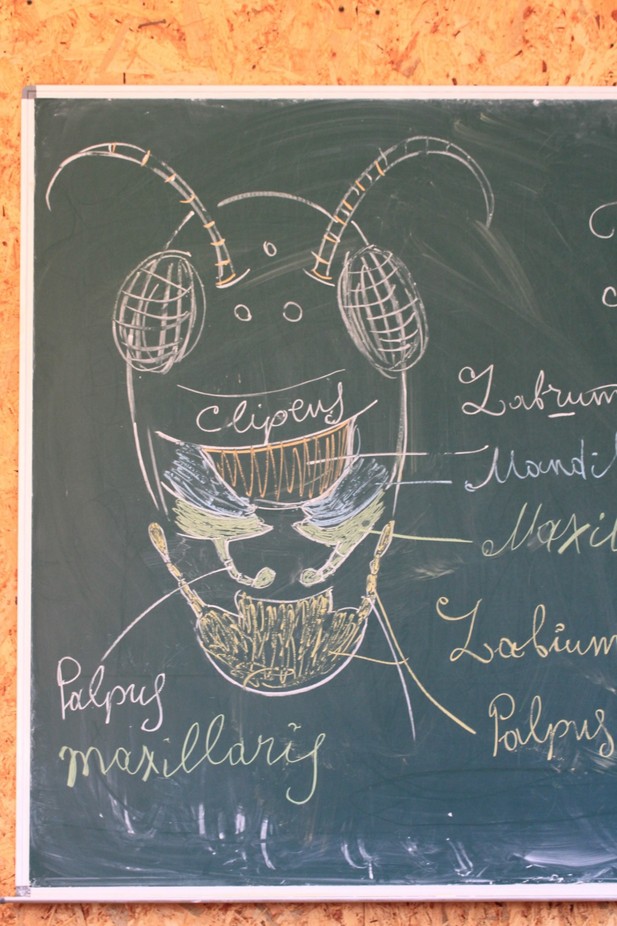 Clipeus
Labrum
Mandi
Maxil
Labium
Palpus
Palpus
maxillaris